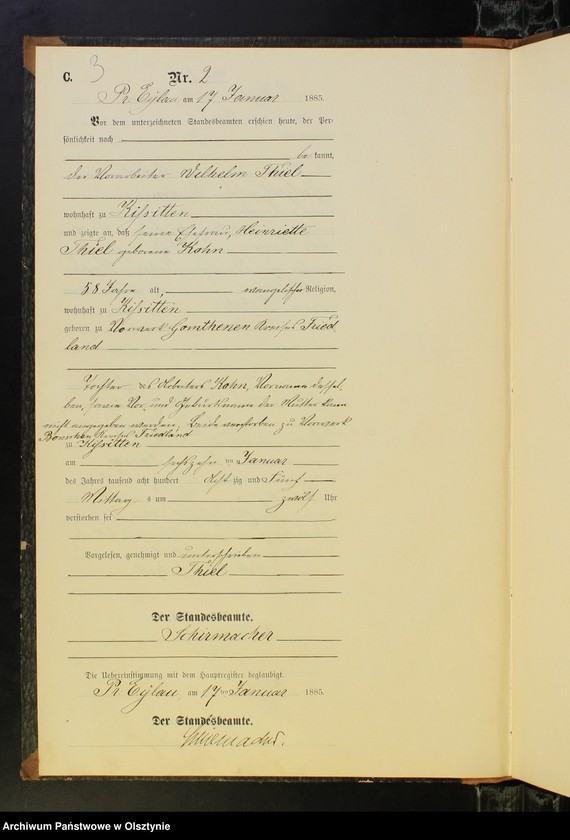 C. 3 Nr. 2
Pr. Eylau am 17 Januar 1885.
Vor dem unterzeichneten Standesbeamten erschien heute, der Per-
sönlichkeit nach
be kannt,
der Wilhelm Thiel
wohnhaft zu Kissitten
und zeigte an, daß seine Ehefrau, Heinriette
Thiel geborene Kohn
58 Jahre alt, evangelischer Religion,
wohnhaft zu Kissitten
geboren zu Vorwerk Gomthenen Kreises Fried
land
Tochter des Arbeiters Kohn, Vorname dessel
ben, sowie Vor und Geburtsname der Mutter kann
nicht angegeben werden, Beide verstorben zu Vorwerk
Kreises Friedland
zu Kissitten
am sechszehn ten Januar
des Jahres tausend acht hundert acht zig und Fünf
Mittag s um zwölf Uhr
verstorben sei
Vorgelesen, genehmigt und unterschrieben
Thiel
Der Standesbeamte.
Schirmacher
Die Uebereinstimmung mit dem Hauptregister beglaubigt.
Pr. Eylau am 17ten Januar 1885.
Der Standesbeamte.
Schirmacher.
Archiwum Państwowe w Olsztynie